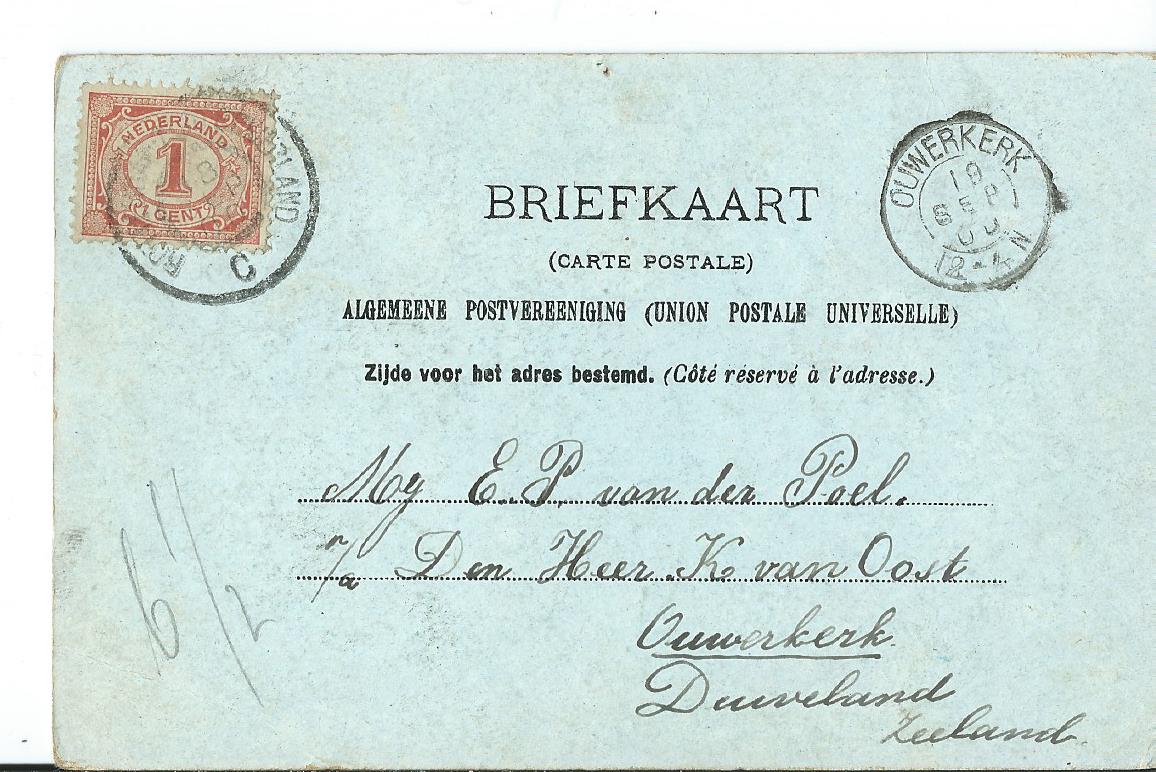 NEDERLAND
1
1 CENT
C
OUWERKERK
18
SEP
12-4 N
BRIEFKAART
(CARTE POSTALE)
ALGEMEENE POSTVEREENIGING (UNION POSTALE UNIVERSELLE)
Zijde voor het adres bestemd. (Côté réservé à l'adresse.)
Mej E. P. van der Poel.
p/a Den Heer K van Oost
Ouwerkerk.
Duiveland
Zeeland
6 1/2